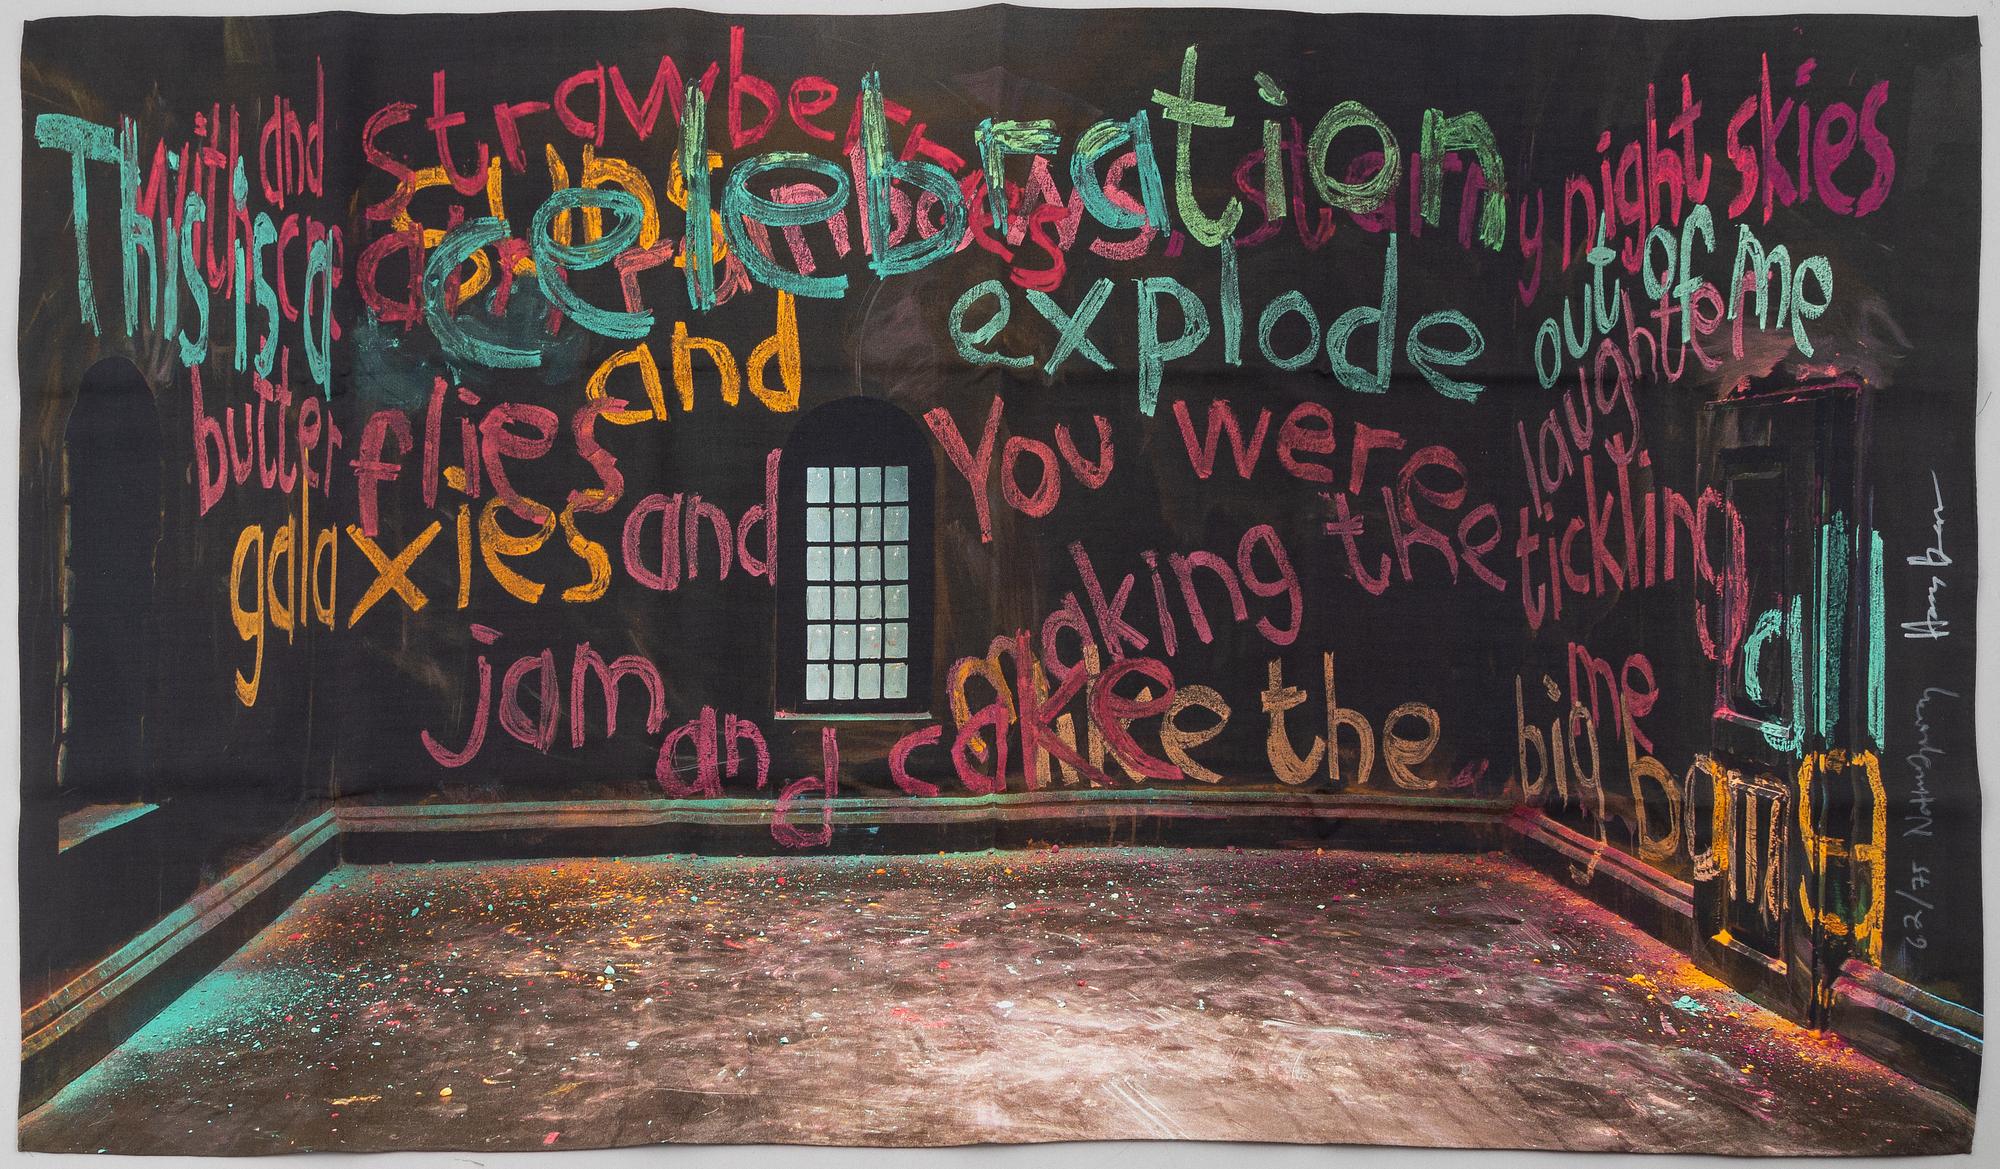 and strawberries
This is a celebration
with suns rainbows, starry night skies
and explode out of me
butterflies You were laughter
galaxies and making the tickling
jam me all
and cake like the big bang
62/75